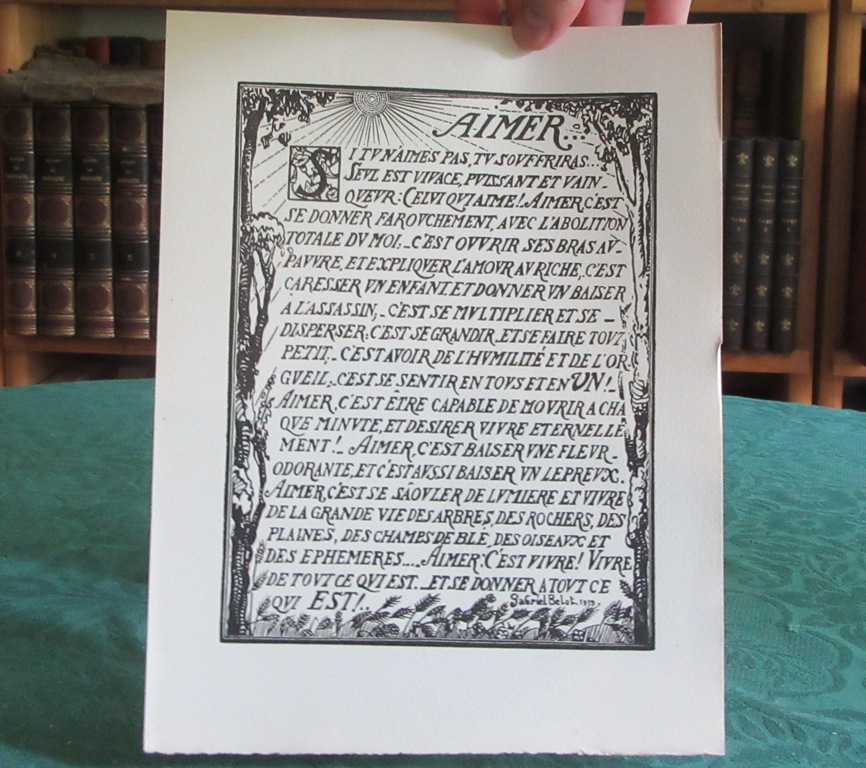 AIMER...
SI TV N'AIMES PAS, TV SOVFFRIRAS...
SEVL EST VIVACE, PVISSANT ET VAIN-
QVEVR: CELVI QVI AIME! AIMER C'EST
SE DONNER FAROVCHEMENT, AVEC L'ABOLITION
TOTALE DV MOI,_ C'EST OVVRIR SES BRAS AV-
PAVVRE, ET EXPLIQVER L'AMOVR AV RICHE, C'EST
CARESSER VN ENFANT ET DONNER VN BAISER
A L'ASSASSIN,_ C'EST SE MVLTIPLIER ET SE _
DISPERSER: C'EST SE GRANDIR ET SE FAIRE TOVT
PETIT,_ C'EST AVOIR DE L'HVMILITÉ ET DE L'OR
GVEIL,_ C'EST SE SENTIR EN TOVS ET EN UN!_
AIMER, C'EST ÊTRE CAPABLE DE MOVRIR A CHA
QVE MINVTE, ET DESIRER VIVRE ETERNELLE
MENT!_ AIMER, C'EST BAISER VNE FLEVR-
ODORANTE, ET C'EST AVSSI BAISER VN LEPREVX.
AIMER, C'EST SE SAOVLER DE LVMIERE ET VIVRE
DE LA GRANDE VIE DES ARBRES, DES ROCHERS, DES
PLAINES, DES CHAMPS DE BLE, DES OISEAVX ET
DES EPHEMERES.... AIMER: C'EST VIVRE! VIVRE
DE TOVT CE QVI EST... ET SE DONNER A TOVT CE
QVI EST!..
Gabriel Belot. 1919.